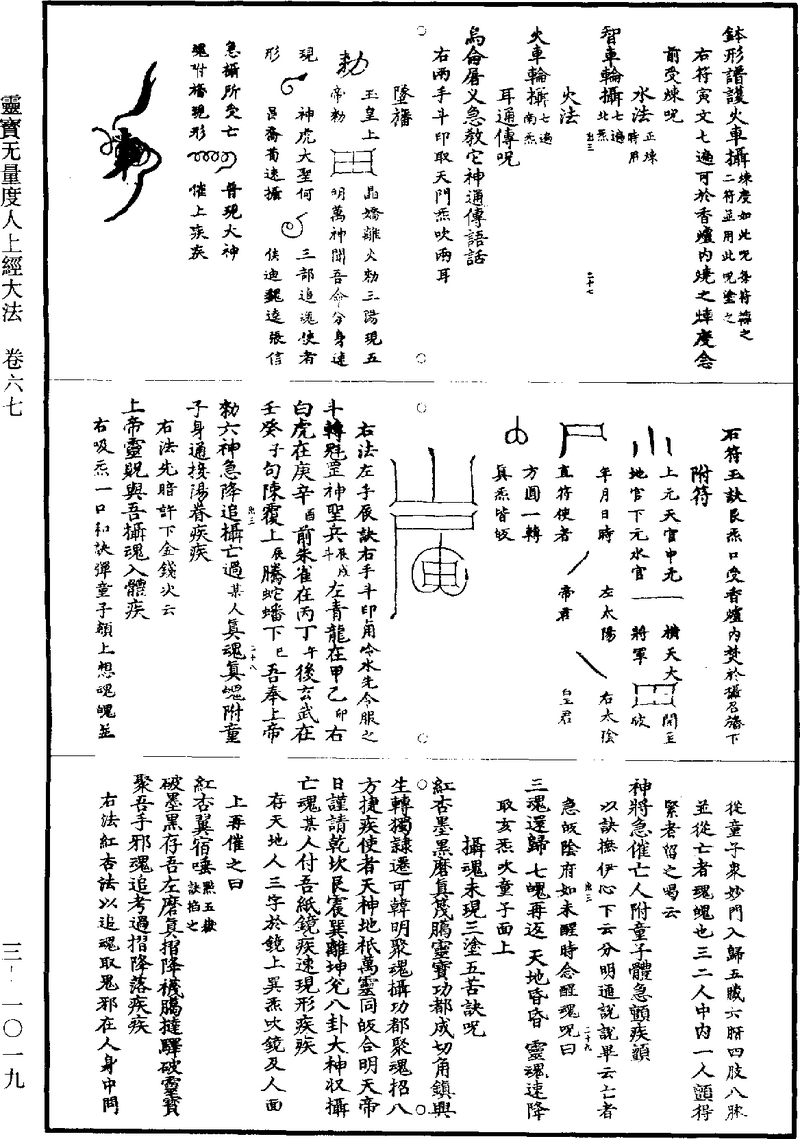 靈寶无量度人上經大法　卷六七
三－一〇一九
鉢形譜護火車攝煉度如此呪每符滿之二符並用此呪塗之
右符寅文七遍可於香爐內燒之煒度念
前受煉呪
水法正煉時用
智車輪攝七遍北炁
火法
火車輪攝七遍南炁
耳通傳呪
烏侖屠义急教它神通傳語話
右兩手斗印取天門炁吹兩耳
墜旛
玉皇上　晶嬌離火勑三陽現五
帝勑　明萬神聞吾命分身速
現　神虎大聖何　三部追魂使者
形　呂喬荀速攝　侯迪魏遠張信
急攝所受亡　普現大神
魂附旛現形　催上疾疾
石符玉訣艮炁口受香爐內焚於攝召旛下
附符
上元天官中元　橫天大　開主
地官下元水官　將軍　破
年月日時　左太陽　右太陰
直符使者　帝君
方圓一轉
真炁皆皈
右法左手辰訣右手斗印角吟水先令服之
斗轉魁罡神聖兵辰戌斗左青龍在甲乙卯右
白虎在庚辛酉前朱雀在丙丁午後玄武在
壬癸子句陳覆上辰騰蛇蟠下巳吾奉上帝
勑六神急降追攝亡過某人真魂真魄附童
子身通接陽眷疾疾
右法先暗許下金錢火云
上帝靈貺與吾攝魂入體疾
右吸炁一口和訣彈童子額上想魂魄並
從童子衆妙門入歸五臟六腑四肢八脉
並從亡者魂魄也三二人中內一人顫得
緊者留之喝云
神將急催亡人附童子體急顫疾顫
以訣撫伊心下云分明通說說畢云亡者
急皈陰府如未醒時念醒魂呪曰
三魂還歸　七魄再返　天地昏昏　靈魂速降
取亥炁吹童子面上
攝魂未現三塗五苦訣呪
紅杏墨黑磨真茂騰靈寶功都成切角鎮興
生轉獨隷遷可韓明聚魂攝功都聚魂招八
方捷疾使者天神地祇萬靈同皈合明天帝
日謹請乾坎艮震巽離坤兌八卦大神収攝
亡魂某人付吾紙鏡疾速現形疾疾
存天地人三字於鏡上巽炁吹鏡及人面
上再催之曰
紅杏翼宿唾黑五嶽訣掐之
破墨黑存吾左磨真摺降機騰撻驛破靈寶
聚吾手邪魂追考過摺降落疾疾
右法紅杏法以追魂取鬼邪在人身中問